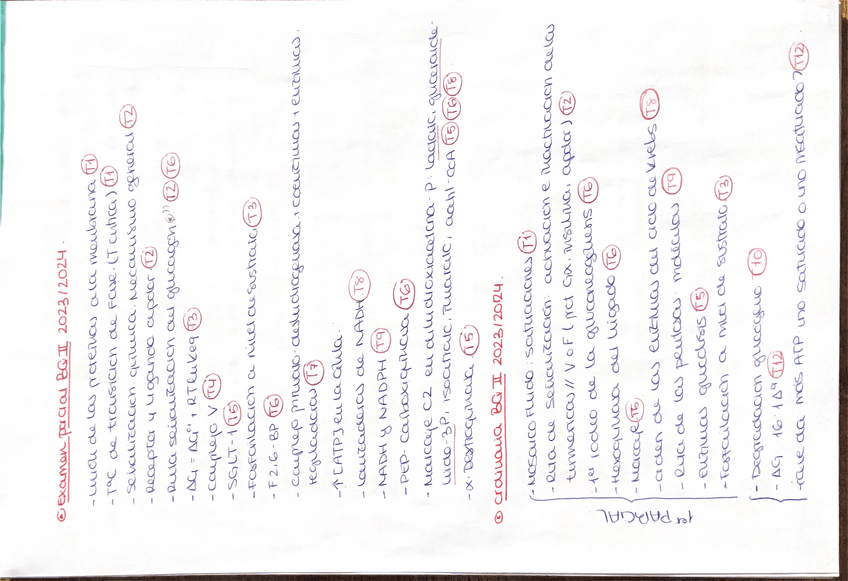 ⊛ Examen parcial BQ II 2023/2024.
- Unión de las proteínas a la membrana (T1)
- TªC de transición de Fase. (T crítica) (T1)
- Señalización química. Mecanismo general (T2)
- Receptor y ligando apolar (T2)
- Ruta señalización del glucagón (T2) (T6)
- ΔG = ΔG°' + RTlnKeq (T3)
- Complejo V (T4)
- SGLT-1 (T5)
- Fosforilación a nivel de sustrato (T3)
- F2,6-BP (T6)
- Complejo piruvato deshidrogenasa, coenzimas y enzimas.
reguladoras (T7)
- ↑[ATP] en la célula.
- Lanzaderas de NADH (T8)
- NADH y NADPH (T9)
- PEP-carboxiquinasa (T6)
- Marcaje C2 en dihidroxiacetona-P: lactato, gliceralde-
hído-3P, isocitrato, fumarato, acetil-CoA (T5) (T6) (T8)
- Hexoquinasa (T5)
⊛ Ordinaria BQ II 2023/2024.
1er PARCIAL
- Mosaico fluido: saturaciones (T1)
- Ruta de señalización: activación e inactivación de las
numéricas // V o F (prot Gα, insulina, apolar) (T2)
- 1er rodeo de la gluconeogénesis (T6)
- Hexoquinasa del hígado (T6)
- Marcaje (T5)
- Orden de las enzimas del ciclo de Krebs (T8)
- Ruta de las pentosas moléculas (T9)
- Enzimas glucólisis (T5)
- Fosforilación a nivel de sustrato (T3)
- Degradación glucógeno (T10)
- AG 16:1Δ⁹ (T12)
- ¿Qué da más ATP uno saturado o uno insaturado? (T12)